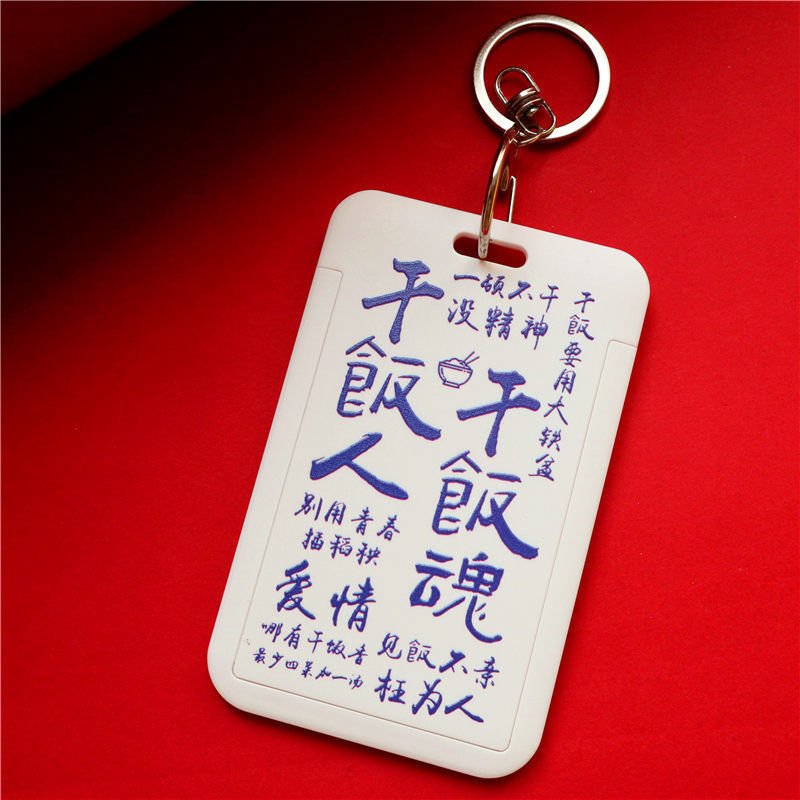 干飯人
干飯魂
一顿不干
没精神
干飯要用大铁盆
别用青春
插稻秧
爱情
哪有干饭香
最少四菜加一汤
见飯不亲
枉为人